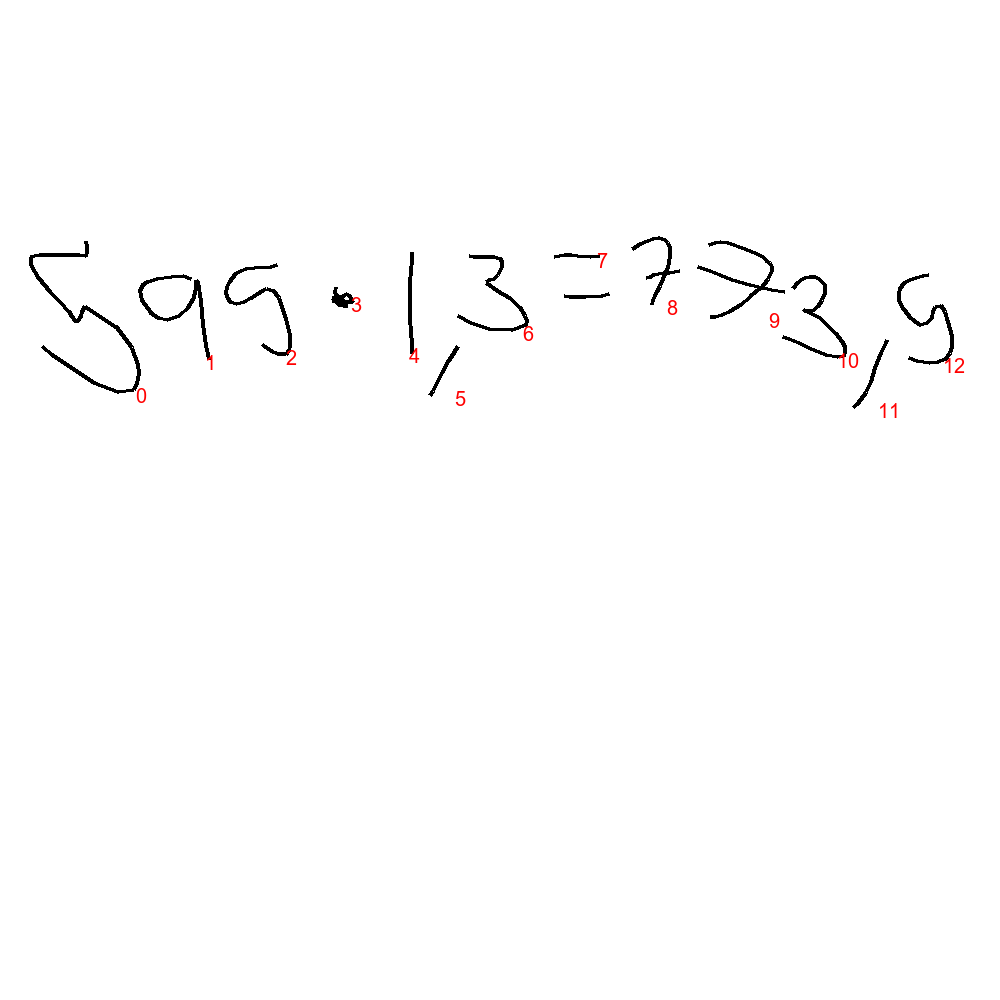 595 · 1,3 = 773,5
0 1 2 3 4 5 6 7 8 9 10 11 12